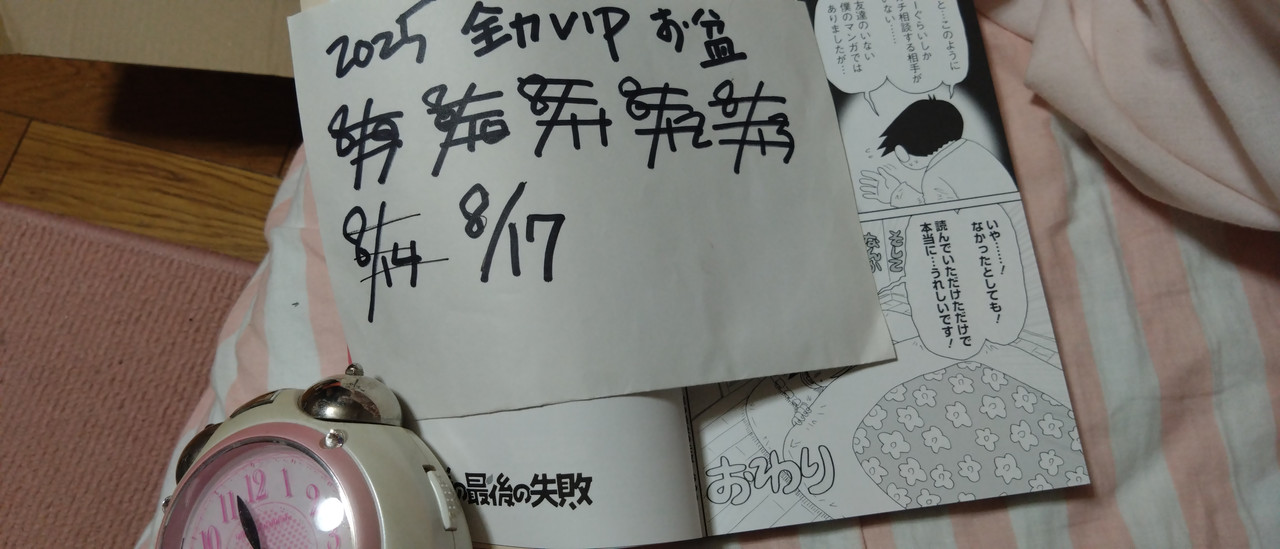 2025 全力VIP お盆
8/9 8/10 8/11 8/12 8/13
8/14 8/17
と…このように
ーぐらいしか
チ相談する相手が
いない……
友達のいない
僕のマンガでは
ありましたが…
いや………!
なかったとしても!
読んでいただけただけで
本当に…うれしいです!
そして
おわり
の最後の失敗
10 11 12 1